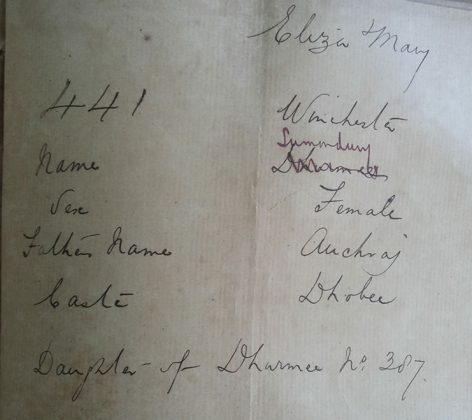 Eliza Mary
441 Winchester
Sumondury
Name Dharmee
Sex Female
Father's Name Auchraj
Caste Dhobee
Daughter of Dharmee No. 387.